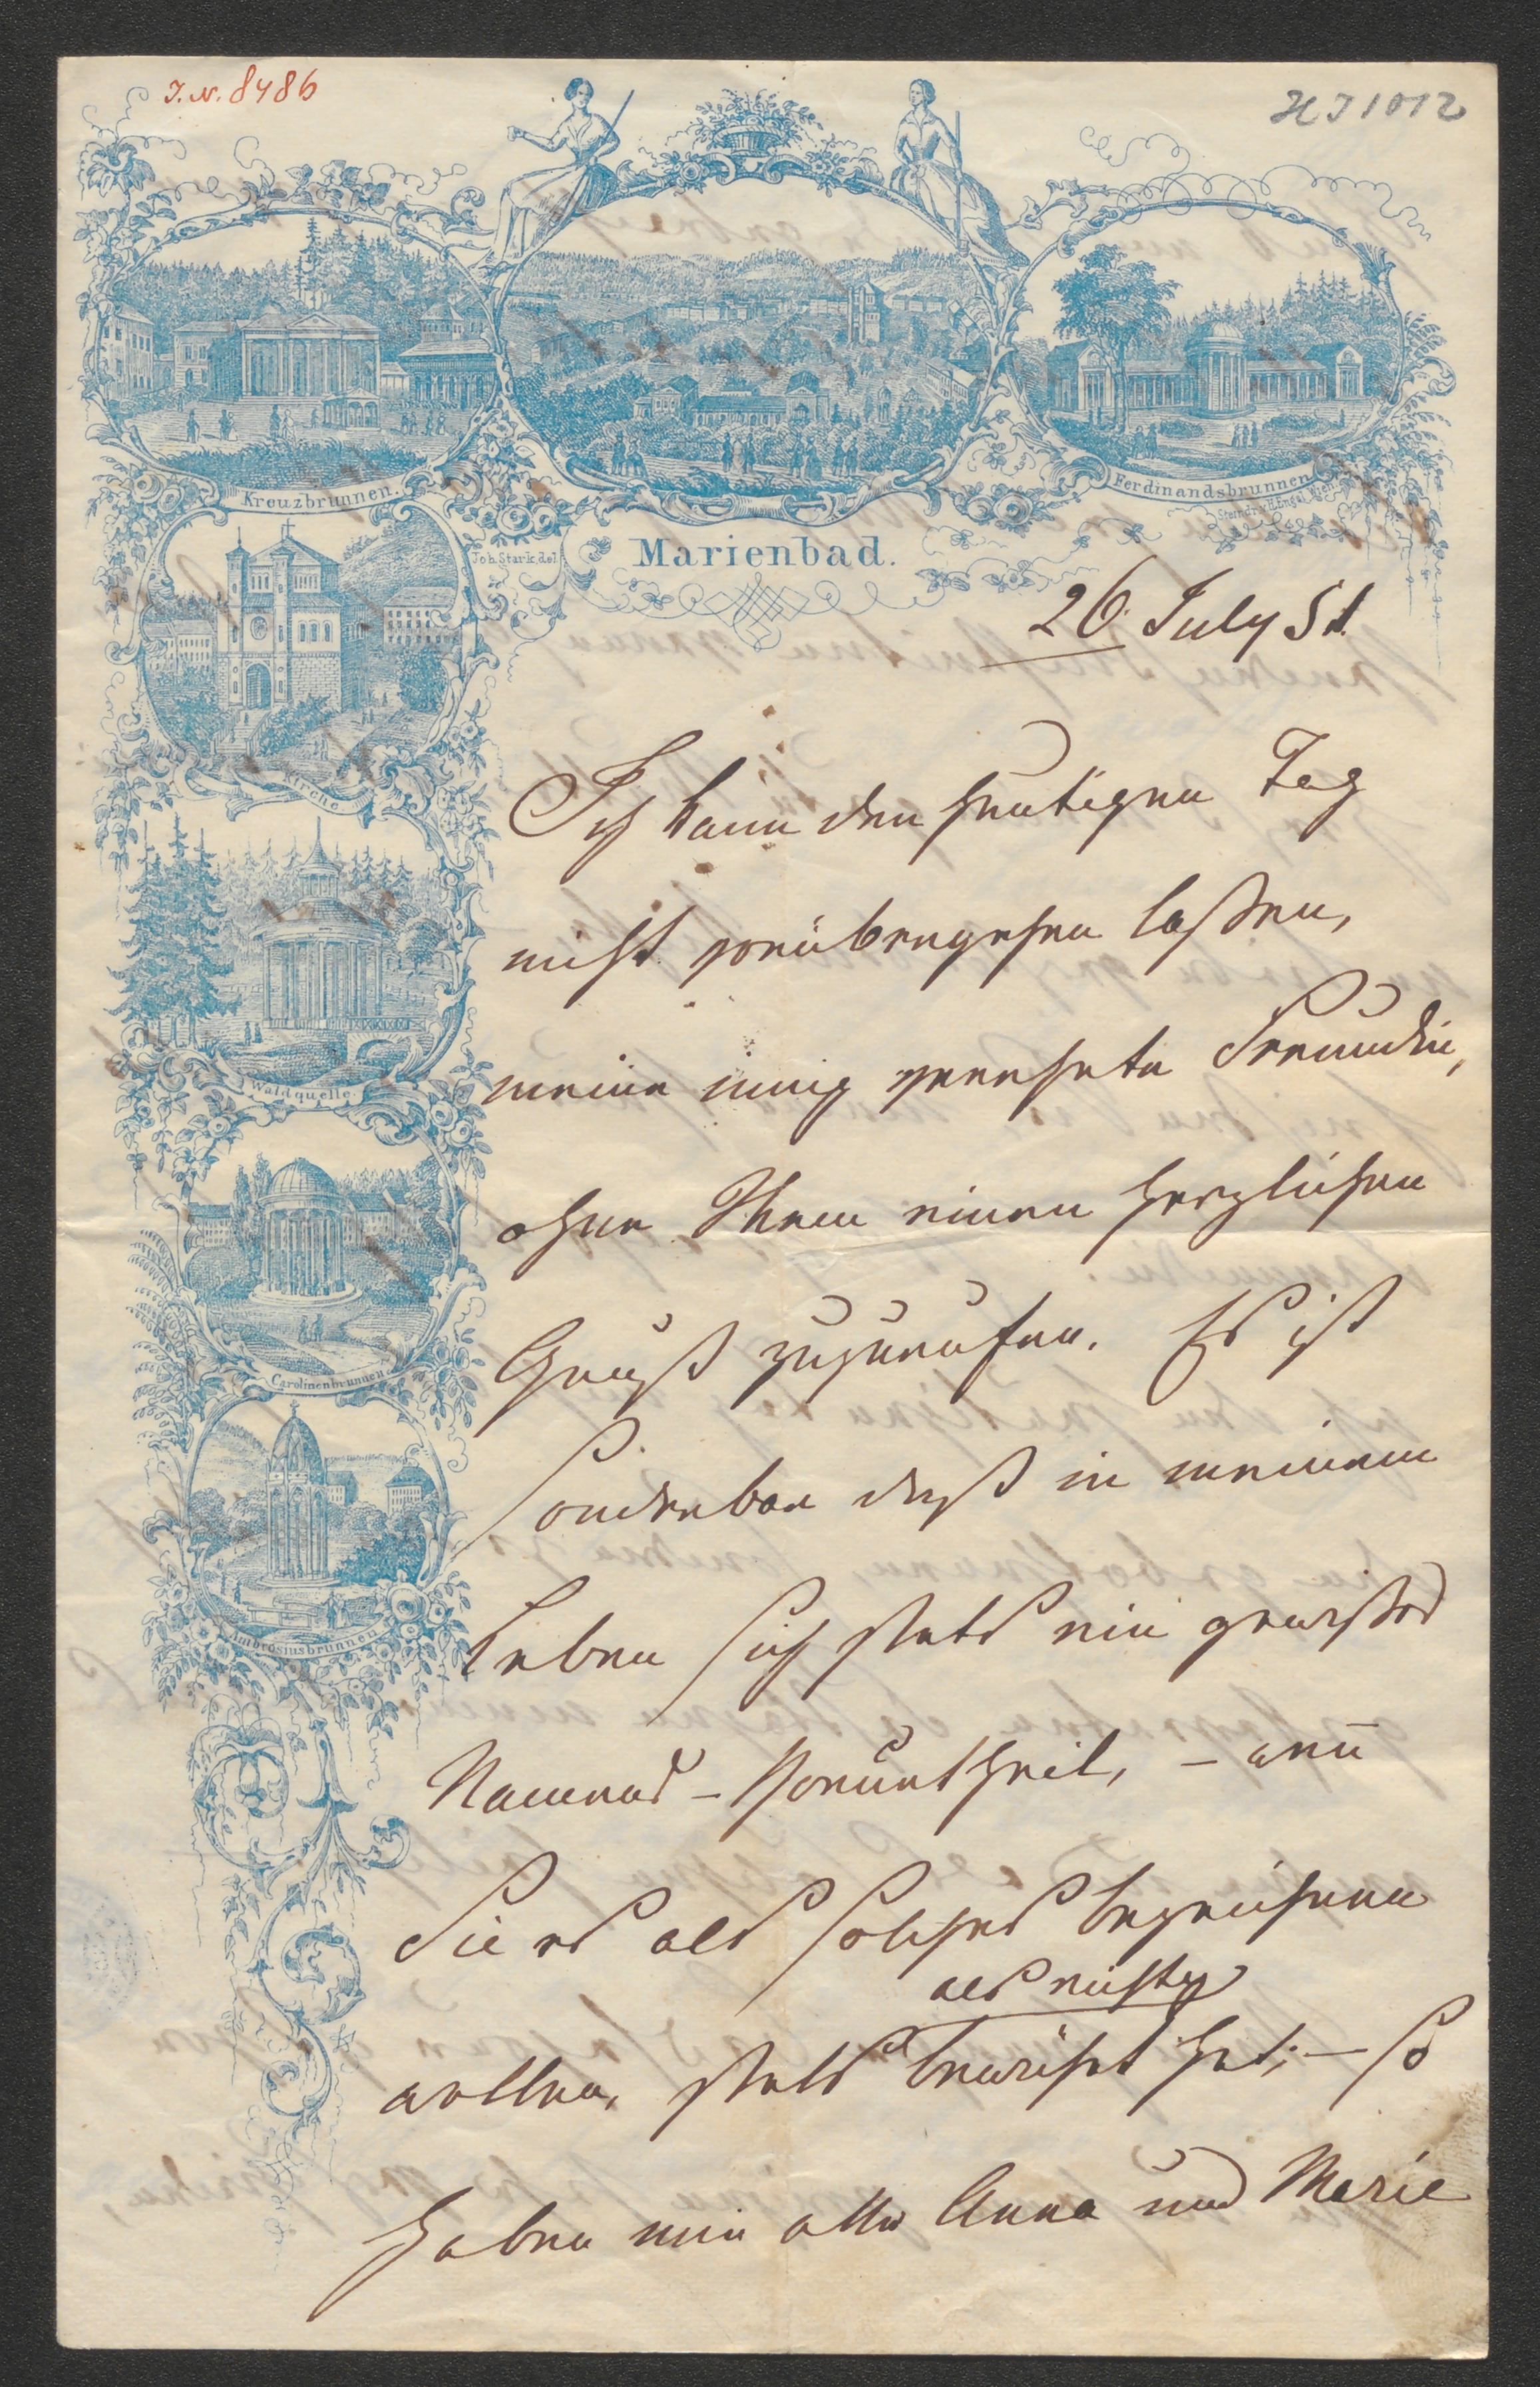 J. N. 8486
H J 1012
Kreuzbrunnen.
Ferdinandsbrunnen
Joh. Stark. del.
Marienbad.
Kirche
Waldquelle.
Carolinenbrunnen
Ambrosiusbrunnen
26. July 51.
Ich kann den heutigen Tag
nicht vorübergehen laßen,
meine innig verehrte Freundin,
ohne Ihnen einen herzlichen
Gruß zuzurufen. Es ist
sonderbar daß in meinem
Leben sich stets ein gewißes
Namens-Vorurtheil, – weñ
Sie es als solches bezeichnen
als richtig
wollen, stets bewährt hat; – so
haben mir alle Anna und Marie